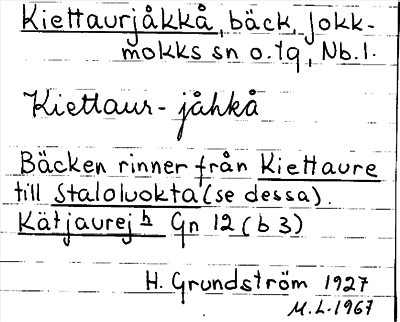 Kiettaurjåkkå, bäck, Jokk-
mokks sn o. tg, Nb. l.
Kiettaur- jåhkå
Bäcken rinner från Kiettaure
till Staloluokta (se dessa).
Kätjaurej h Gn 12 (b 3)
H. Grundström 1927
M.L. 1967